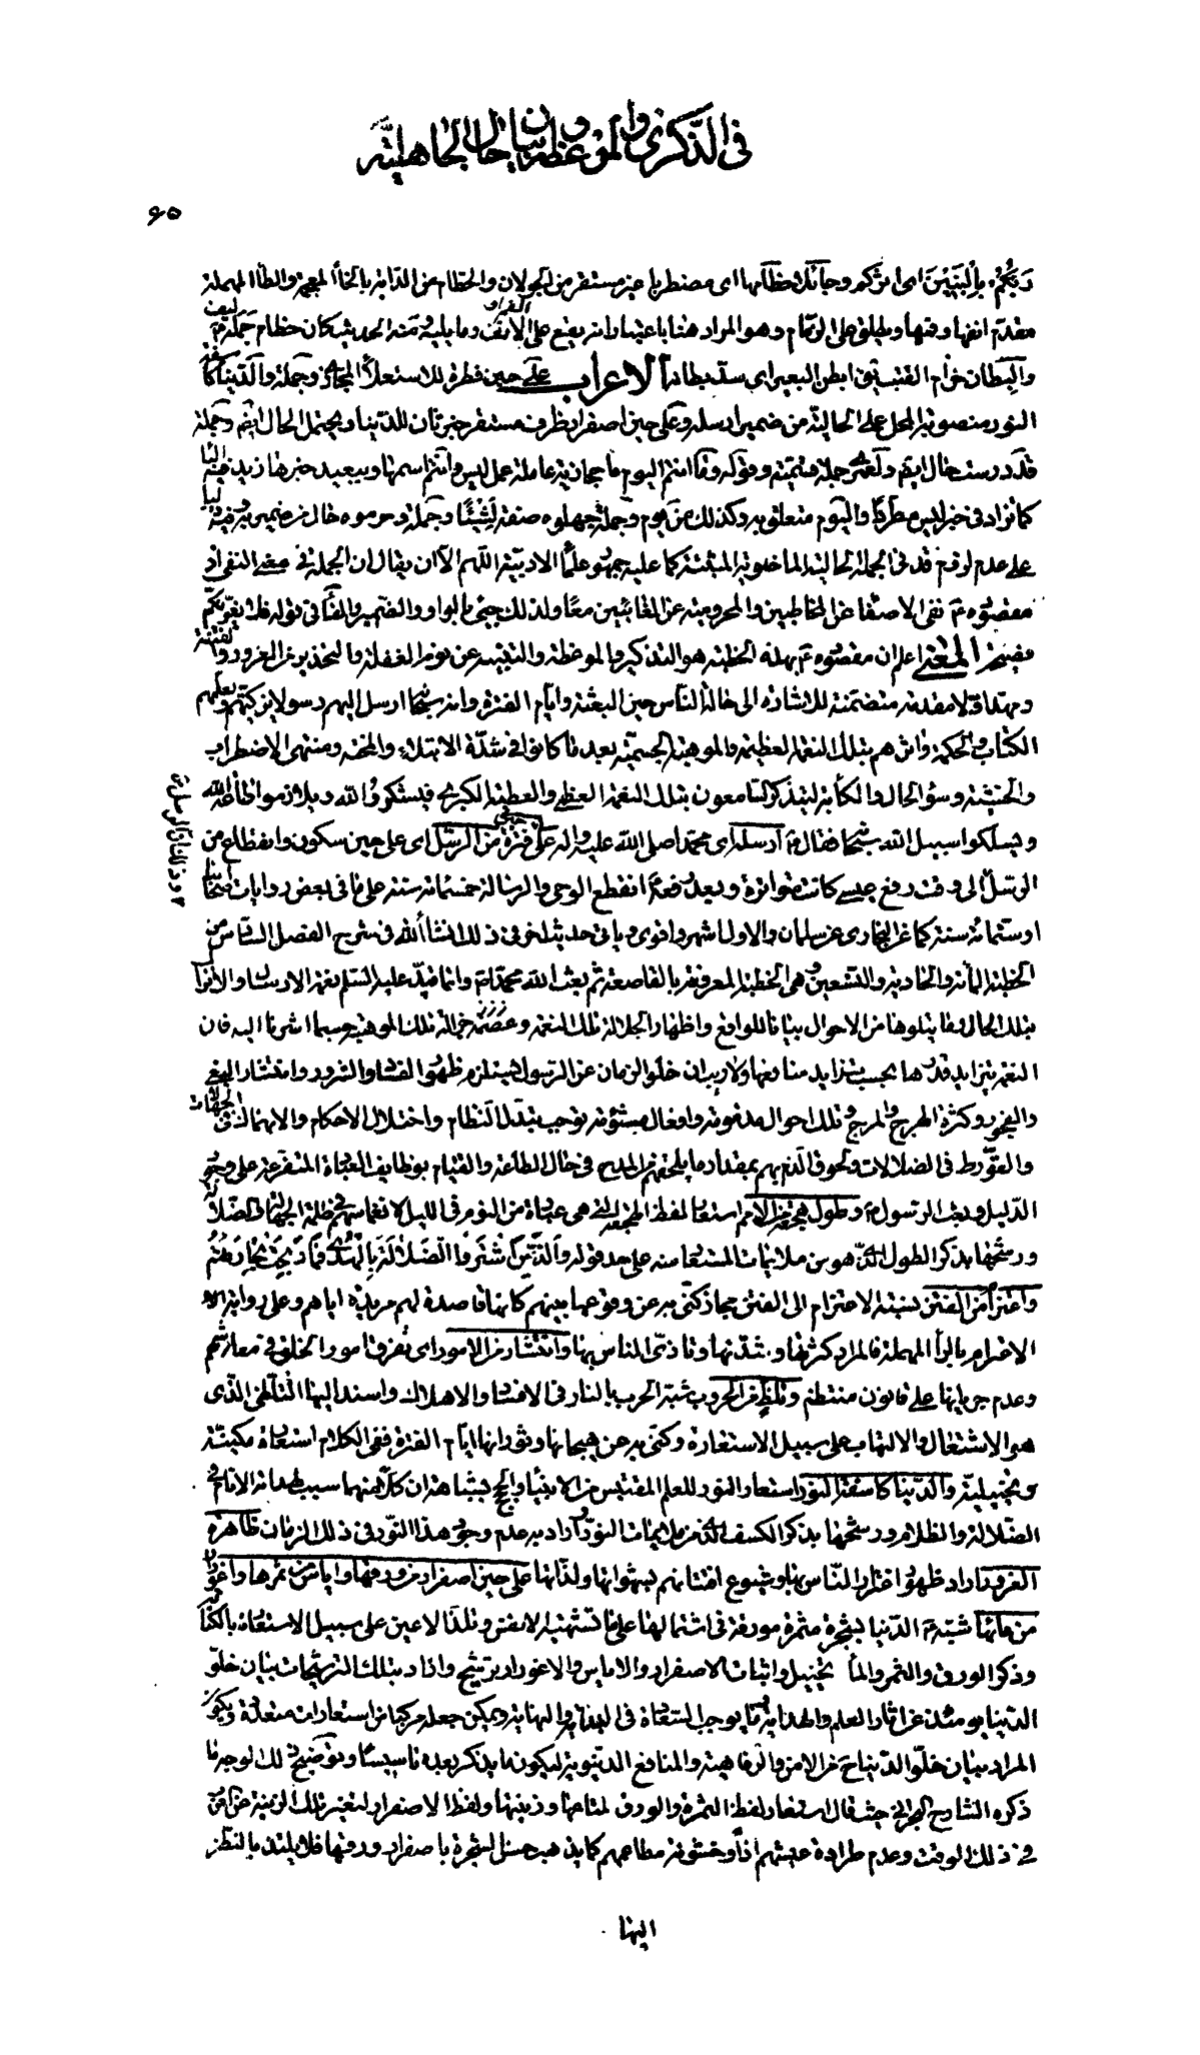 في الذكرى والموعظة وبيان حال الجاهلية
٦٥
ربكم بالبنين اي اثركم وجائلا خطامها اي مضطربا غير مستقر من الجولان والخطام من الدابة بالخاء المعجمة والطاء المهملة
مقدم انفها وفمها ويطلق على الزمام وهو المراد هنا باعتبار انه يقع على الانف وما يليه ومنه الحديث كان خطام جمله ليف
والبطان حزام القتب يلي ابطن البعير اي سد بطانه الاعراب على حين فطرة للاستعلاء المجازي وجملة والدنيا كاسفة
النور منصوبة المحل على الحالية من ضمير ارسله وعلى حين اصفرار ظرف مستقر خبر ثان للدنيا ويحتمل الحال ايضا وجملة
قد درست حال ايضا ولعمري جملة قسمية وقوله وما انتم اليوم ما حجازية عاملة عمل ليس وانتم اسمها وببعيد خبرها زيد فيه الباء
كما تزاد في خبر ليس مطردا واليوم متعلق به وكذلك من يوم وجملة جهلوه صفة لشيئا وجملة وحرموه حال من ضمير به
على عدم لزوم قد في الجملة الحالية الماضوية المثبتة كما عليه جمهور علماء الادبية اللهم الا ان يقال ان الجملة في معنى النفي اذ
مقصوده نفي الاصفاء عن المخاطبين والمحرومية عن الغائبين معا ولذلك جيئ بالواو والضمير والفاء في قوله فلا يغرنكم
فصيحة المعنى اعلم ان مقصوده بهذه الخطبة هو التذكير والموعظة والتنبيه عن نوم الغفلة والتحذير عن الغرور والفتنة
ومهد اولا مقدمة متضمنة للاشارة الى حالة الناس حين البعثة وايام الفترة وانه سبحانه ارسل اليهم رسولا يزكيهم ويعلمهم
الكتاب والحكمة واثرهم بتلك النعمة العظيمة والموهبة الجسيمة بعد ما كانوا في شدة الابتلاء والمحنة ومنتهى الاضطراب
والخشية وسوء الحال والكآبة ليتذكر السامعون بتلك النعمة العظمى والعطية الكبرى فيشكروا لله ويلازموا طاعة الله
ويسلكوا سبيل الله سبحانه فقال ارسله اي محمدا صلى الله عليه واله على حين فترة من الرسل اي على حين سكون وانقطاع من
الرسل الى وقت رفع عيسى كانت متواترة وبعد رفعه انقطع الوحي والرسالة خمسمائة سنة على ما في بعض روايات اصحابنا
او ستمائة سنة كما عن البخاري عن سلمان والاول اشهر واقوى وياتي حديث اخر في ذلك انشاء الله في شرح الفصل السادس من
الخطبة المائة والحادية والتسعين وهي الخطبة المعروفة بالقاصعة ثم بعث الله محمدا وانما قيد عليه السلام نعمة الارسال
بتلك الحال وما يتلوها من الاحوال بيانا للواقع واظهارا لجلالة تلك النعمة وعظمة تلك الموهبة حسبما اشرنا اليه فان
النعم يتزايد قدرها بحسب تزايد منافعها ولا ريب ان خلو الزمان عن الرسول يستلزم ظهور الفساد والشرور وانتشار البغي
والفجور وكثرة الهرج والمرج وتلك احوال مذمومة وافعال مشئومة توجب تبدل النظام واختلال الاحكام والانهماك في الجهالات
والتورط في الضلالات ولحوق الذم بهم بمقدار ما يلحقهم من المدح في حال الطاعة والقيام بوظايف العبادة المتفرعة على وجود
الدليل وبعث الرسول وطول هجعة من الامم استعار لفظ الهجعة التي هي عبارة من النوم في الليل لانغماسهم في ظلمة الجهالة والضلالة
ورشحها بذكر الطول الذي هو من ملايمات المستعار منه على حد قوله والذين اشتروا الضلالة بالهدى فما ربحت تجارتهم
واعتزام من الفتن نسبة الاعتزام الى الفتن مجاز كنى به عن وقوعها بينهم كانها قاصدة لهم مريدة اياهم وعلى رواية
الاعترام بالراء المهملة فالمراد كثرتها وشدتها وتاذى الناس بها وانتشار من الامور اي تفرق امور الخلق في معاشهم
وعدم جريانها على قانون منتظم وتلظ من الحروب شبه الحرب بالنار في الافساد والاهلاك واسند اليها التلظي الذي
هو الاشتعال والالتهاب على سبيل الاستعارة وكنى به عن هيجانها وثورانها ايام الفترة ففي الكلام استعارة مكنية
وتخييلية والدنيا كاسفة النور استعار النور للعلم المقتبس من الانبياء والحجج بمشابهة ان كلا منهما سبب هداية الانام في
الضلالة والظلام ورشحها بذكر الكسف الذي من ملايمات النور واراد به عدم وجود هذا النور في ذلك الزمان ظاهرة
الغرور اراد ظهور اغترار الناس بها وشيوع افتتانهم بشهواتها ولذاتها على حين اصفرار من ورقها واياس من ثمرها واغورار
من مائها شبه الدنيا بشجرة مثمرة مورقة في اشتمالها على ما تشتهيه الانفس وتلذ الاعين على سبيل الاستعارة بالكناية
وذكر الورق والثمر والماء تخييل واثبات الاصفرار والاياس والاغورار ترشيح واراد بتلك الترشيحات بيان خلو
الدنيا يومئذ عن اثار العلم والهداية وما يوجب السعادة في البداية والنهاية ويمكن جعله مركبا من استعارات متعددة ويكون
المراد بيان خلو الدنيا من الامن والرفاهية والمنافع الدنيوية ليكون ما يذكر بعده تاسيسا وتوضيح ذلك الوجه ما
ذكره الشارح البحراني حيث قال استعار لفظ الثمرة والورق لمتاعها وزينتها ولفظ الاصفرار لتغير تلك الزينة عن العرب
في ذلك الوقت وعدم طراوة عيشهم اذا وخشونة مطاعمهم كما يذهب حسن الشجرة باصفرار ورقها فلا يلتذ بالنظر
اليها